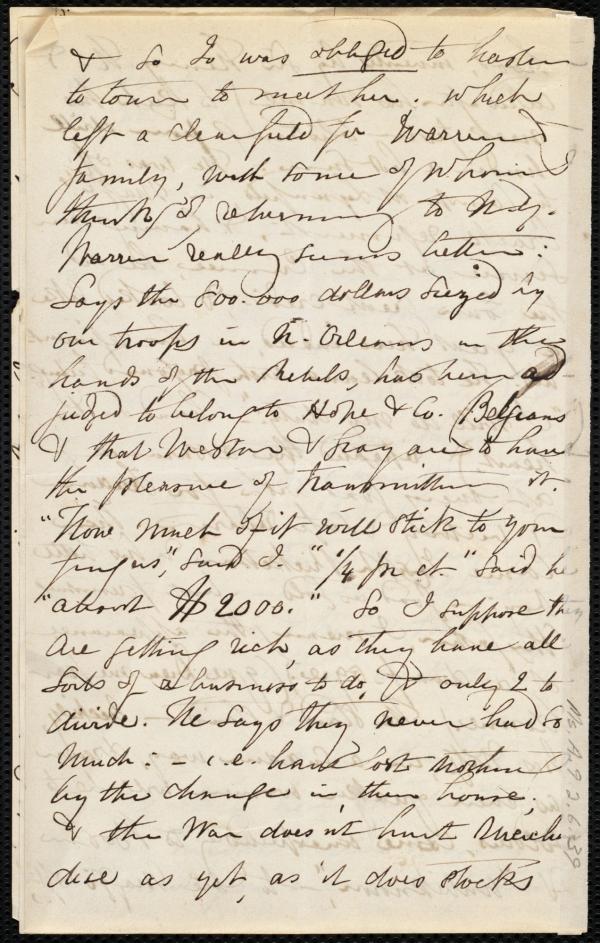 & so Jo was obliged to hasten
to town to meet her. which
left a clear field for Warren &
family, with some of whom I
think of returning to N.Y.
Warren really seems better:
Says the 800.000 dollars siezed by
our troops in N. Orleans in the
hands of the Rebels, has been ad
judged to belong to Hope & Co. Belgians
& that Weston & Gray are to have
the pleasure of transmitting it.
"How much of it will stick to your
fingers", said I. "1/4 pr ct." said he
"about $2000." So I suppose they
are getting rich, as they have all
sorts of a business to do, & only 2 to
divide. He says they never had so
much: - i.e. have lost nothing
by the change in their house;
& the War does n't hurt Merchan
dise as yet, as it does stocks
Ms. A. 9. 2. 6. 39